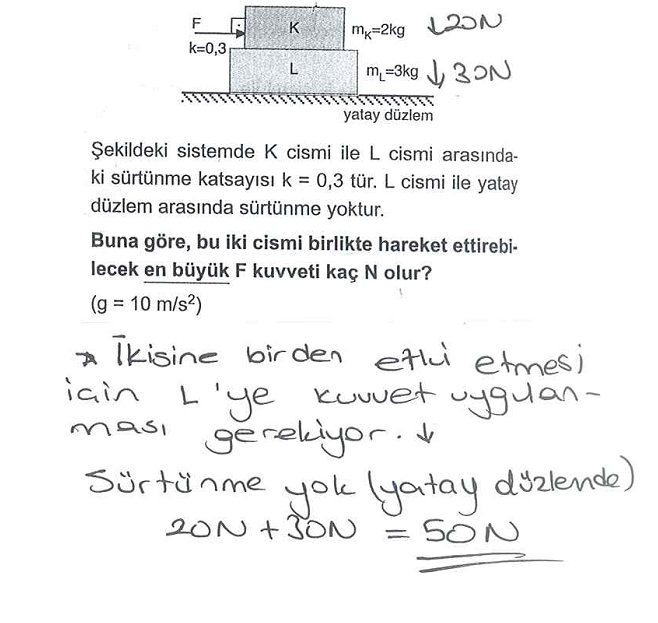 F
K
m_K=2kg ↓20N
k=0,3
L
m_L=3kg ↓30N
yatay düzlem
Şekildeki sistemde K cismi ile L cismi arasında-
ki sürtünme katsayısı k = 0,3 tür. L cismi ile yatay
düzlem arasında sürtünme yoktur.
Buna göre, bu iki cismi birlikte hareket ettirebi-
lecek en büyük F kuvveti kaç N olur?
(g = 10 m/s²)
* İkisine birden etki etmesi
için L'ye kuvvet uygulan-
ması gerekiyor. ↓
Sürtünme yok (yatay düzlende)
20N + 30N = 50N